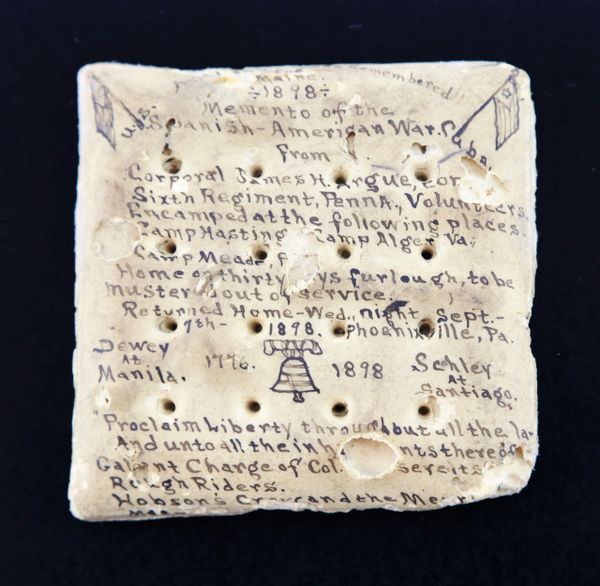 Remembered!!
Maine.
÷1898÷
U.S.
Memento of the
Spanish-American War. Cuba.
From
Corporal James H. Argue,
Sixth Regiment, Penna., Volunteers,
Encamped at the following places.
Camp Hasting Camp Alger Va,
Camp Meade
Home on thirty ys furlough, to be
mustered out of service.
Returned Home-Wed., night Sept.-
7th- 1898. Phoenixville, Pa.
Dewey
At
Manila.
1776. 1898
Schley
At
Santiago.
"Proclaim Liberty throughout all the
And unto all the inh nts thereof
Galant Charge of Col
Rough Riders.
Hobson's Crew and the